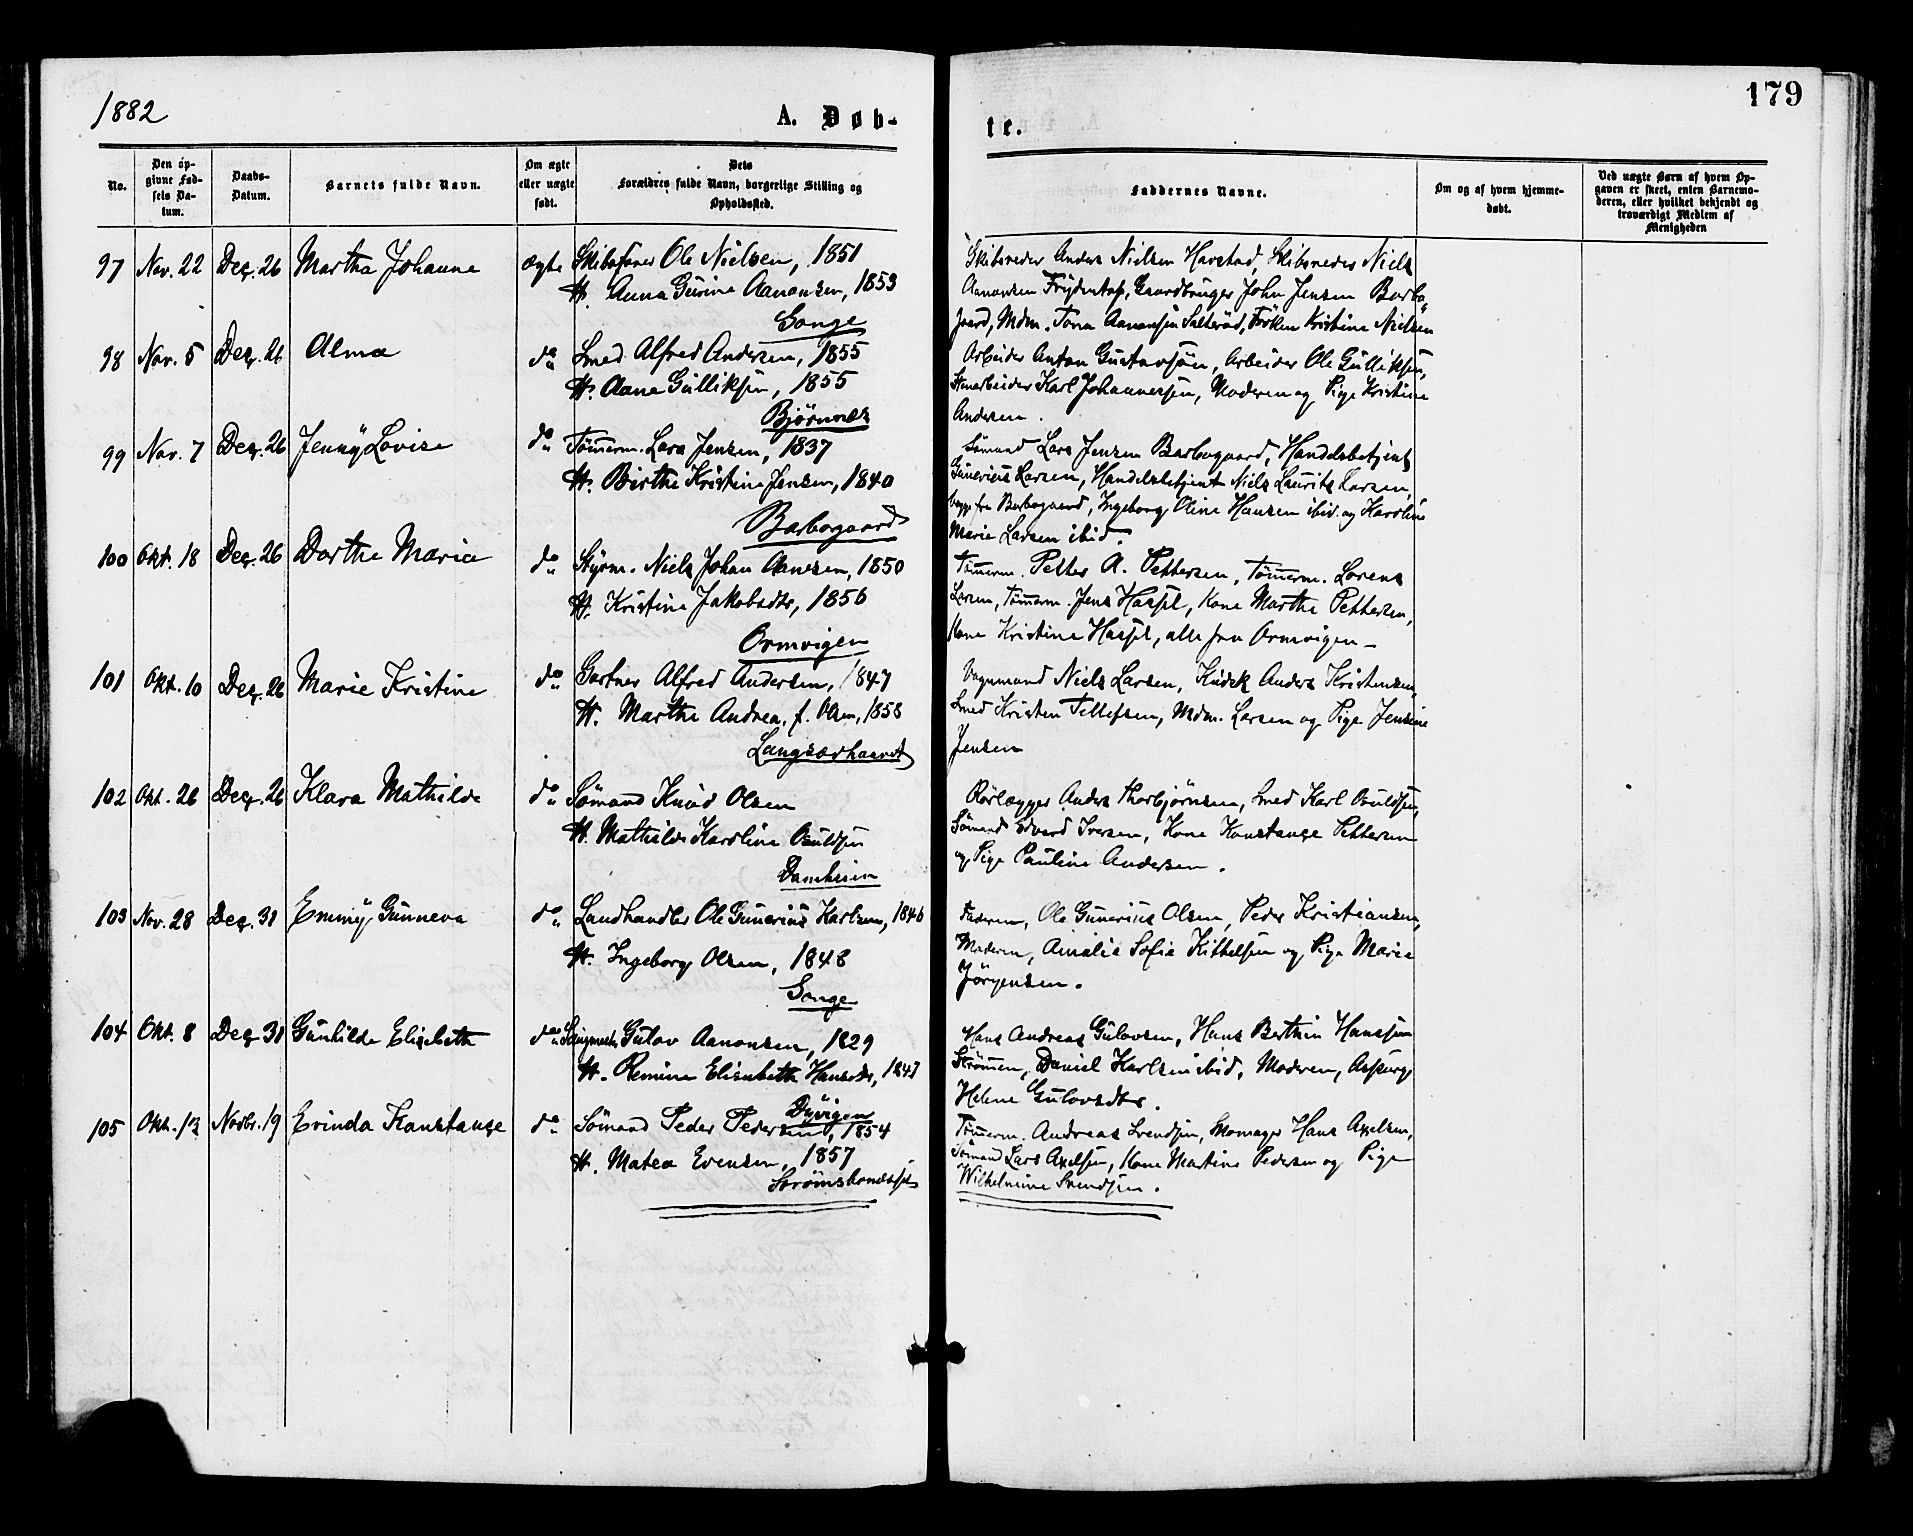 1882
A. Døb-
No.
Den op-
givne Fød-
sels Da-
tum.
Daabs-
Datum.
Barnets fulde Navn.
Om ægte
eller uægte
født.
Dets
Forældres fulde Navn, borgerlige Stilling og
Opholdssted.
97 Nov. 22 Dec. 26 Martha Johanne ægte Skibsfører Ole Nielsen, 1851
H. Anna Gurine Aanonsen, 1853
Songe
98 Nov. 5 Dec. 26 Alma do Smed Alfred Andersen, 1855
H. Aane Gulliksen, 1855
Bjørnnes
99 Nov. 7 Dec. 26 Jenny Lovise do Tømerm. Lars Jensen, 1837
H. Birthe Kristine Jensen, 1840
Barbogaard
100 Okt. 18 Dec. 26 Dorthe Marie do Styrm. Niels Johan Aanesen, 1850
H. Kristine Jakobsdtr, 1856
Ormvigen
101 Okt. 10 Dec. 26 Marie Kristine do Gartner Alfred Andersen, 1847
H. Marthe Andrea, f. Olsen, 1858
Langsævhauvet
102 Okt. 26 Dec. 26 Klara Mathilde do Sømand Knud Olsen
H. Mathilde Karoline Osuldsen
Damheien
103 Nov. 28 Dec. 31 Emmy Gunneva do Landhandler Ole Gunerius Karlsen, 1846
H. Ingeborg Olsen, 1848
Songe
104 Okt. 8 Dec. 31 Gunhilde Elisebeth do Gulov Aanonsen, 1829
H. Remine Elisabeth Hansdtr, 1847
Dyvigen
105 Okt. 13 Novbr. 19 Evinda Konstanse do Sømand Peder Pedersen, 1854
H. Matea Evensen, 1857
Strømsbonæsset
179
te.
Faddernes Navne.
Om og af hvem hjemme-
døbt.
Ved uægte Børn af hvem Op-
gaven er skeet, enten Barnemo-
deren, eller hvilket bekjendt og
troværdigt Medlem af
Menigheden
Skibsreder Anders Nielsen Havstad, Skibsreder Niels
Aanonsen Frydentop, Gaardbruger John Jensen Barbo-
gaard, Mdm. Tona Aanonsen Salterød, Frøken Kristine Nielsen
Arbeider Anton Gustavsøn, Arbeider Ole Gulliksen,
Stenarbeider Karl Johannesen, Moderen og Pige Kristine
Andersen.
Sømand Lars Jensen Barbogaard, Handelsbetjent
Gunerius Larsen, Handelsbetjent Niels Laurits Larsen,
begge fra Barbogaard, Ingeborg Oline Hansen ibid. og Karoline
Marie Larsen ibid.
Tømerm. Petter A. Pettersen, Tømerm. Lorens
Larsen, Tømerm. Jens Hassel, Kone Marthe Pettersen,
Kone Kristine Hassel, alle fra Ormvigen
Vognmand Niels Larsen, Kudsk Anders Kristensen,
Smed Kristen Tellefsen, Mdm. Larsen og Pige Jensine
Jensen
Rørlægger Anders Thorbjørnsen, Smed Karl Osuldsen,
Sømand Edvard Iversen, Kone Konstanse Pettersen
og Pige Pauline Andersen.
Faderen, Ole Gunerius Olsen, Peder Kristiansen,
Moderen, Amalie Sofie Kittelsen og Pige Marie
Jørgensen.
Hans Andreas Gulovsen, Hans Berthin Hanssen
Strømmen, Daniel Karlsen ibid, Moderen, Aasburg
Helene Gulovsdtr.
Tømerm. Andreas Svendsen, Hans Axelsen,
Sømand Lars Axelsen, Kone Martine Pedersen og Pige
Wilhelmine Svendsen.